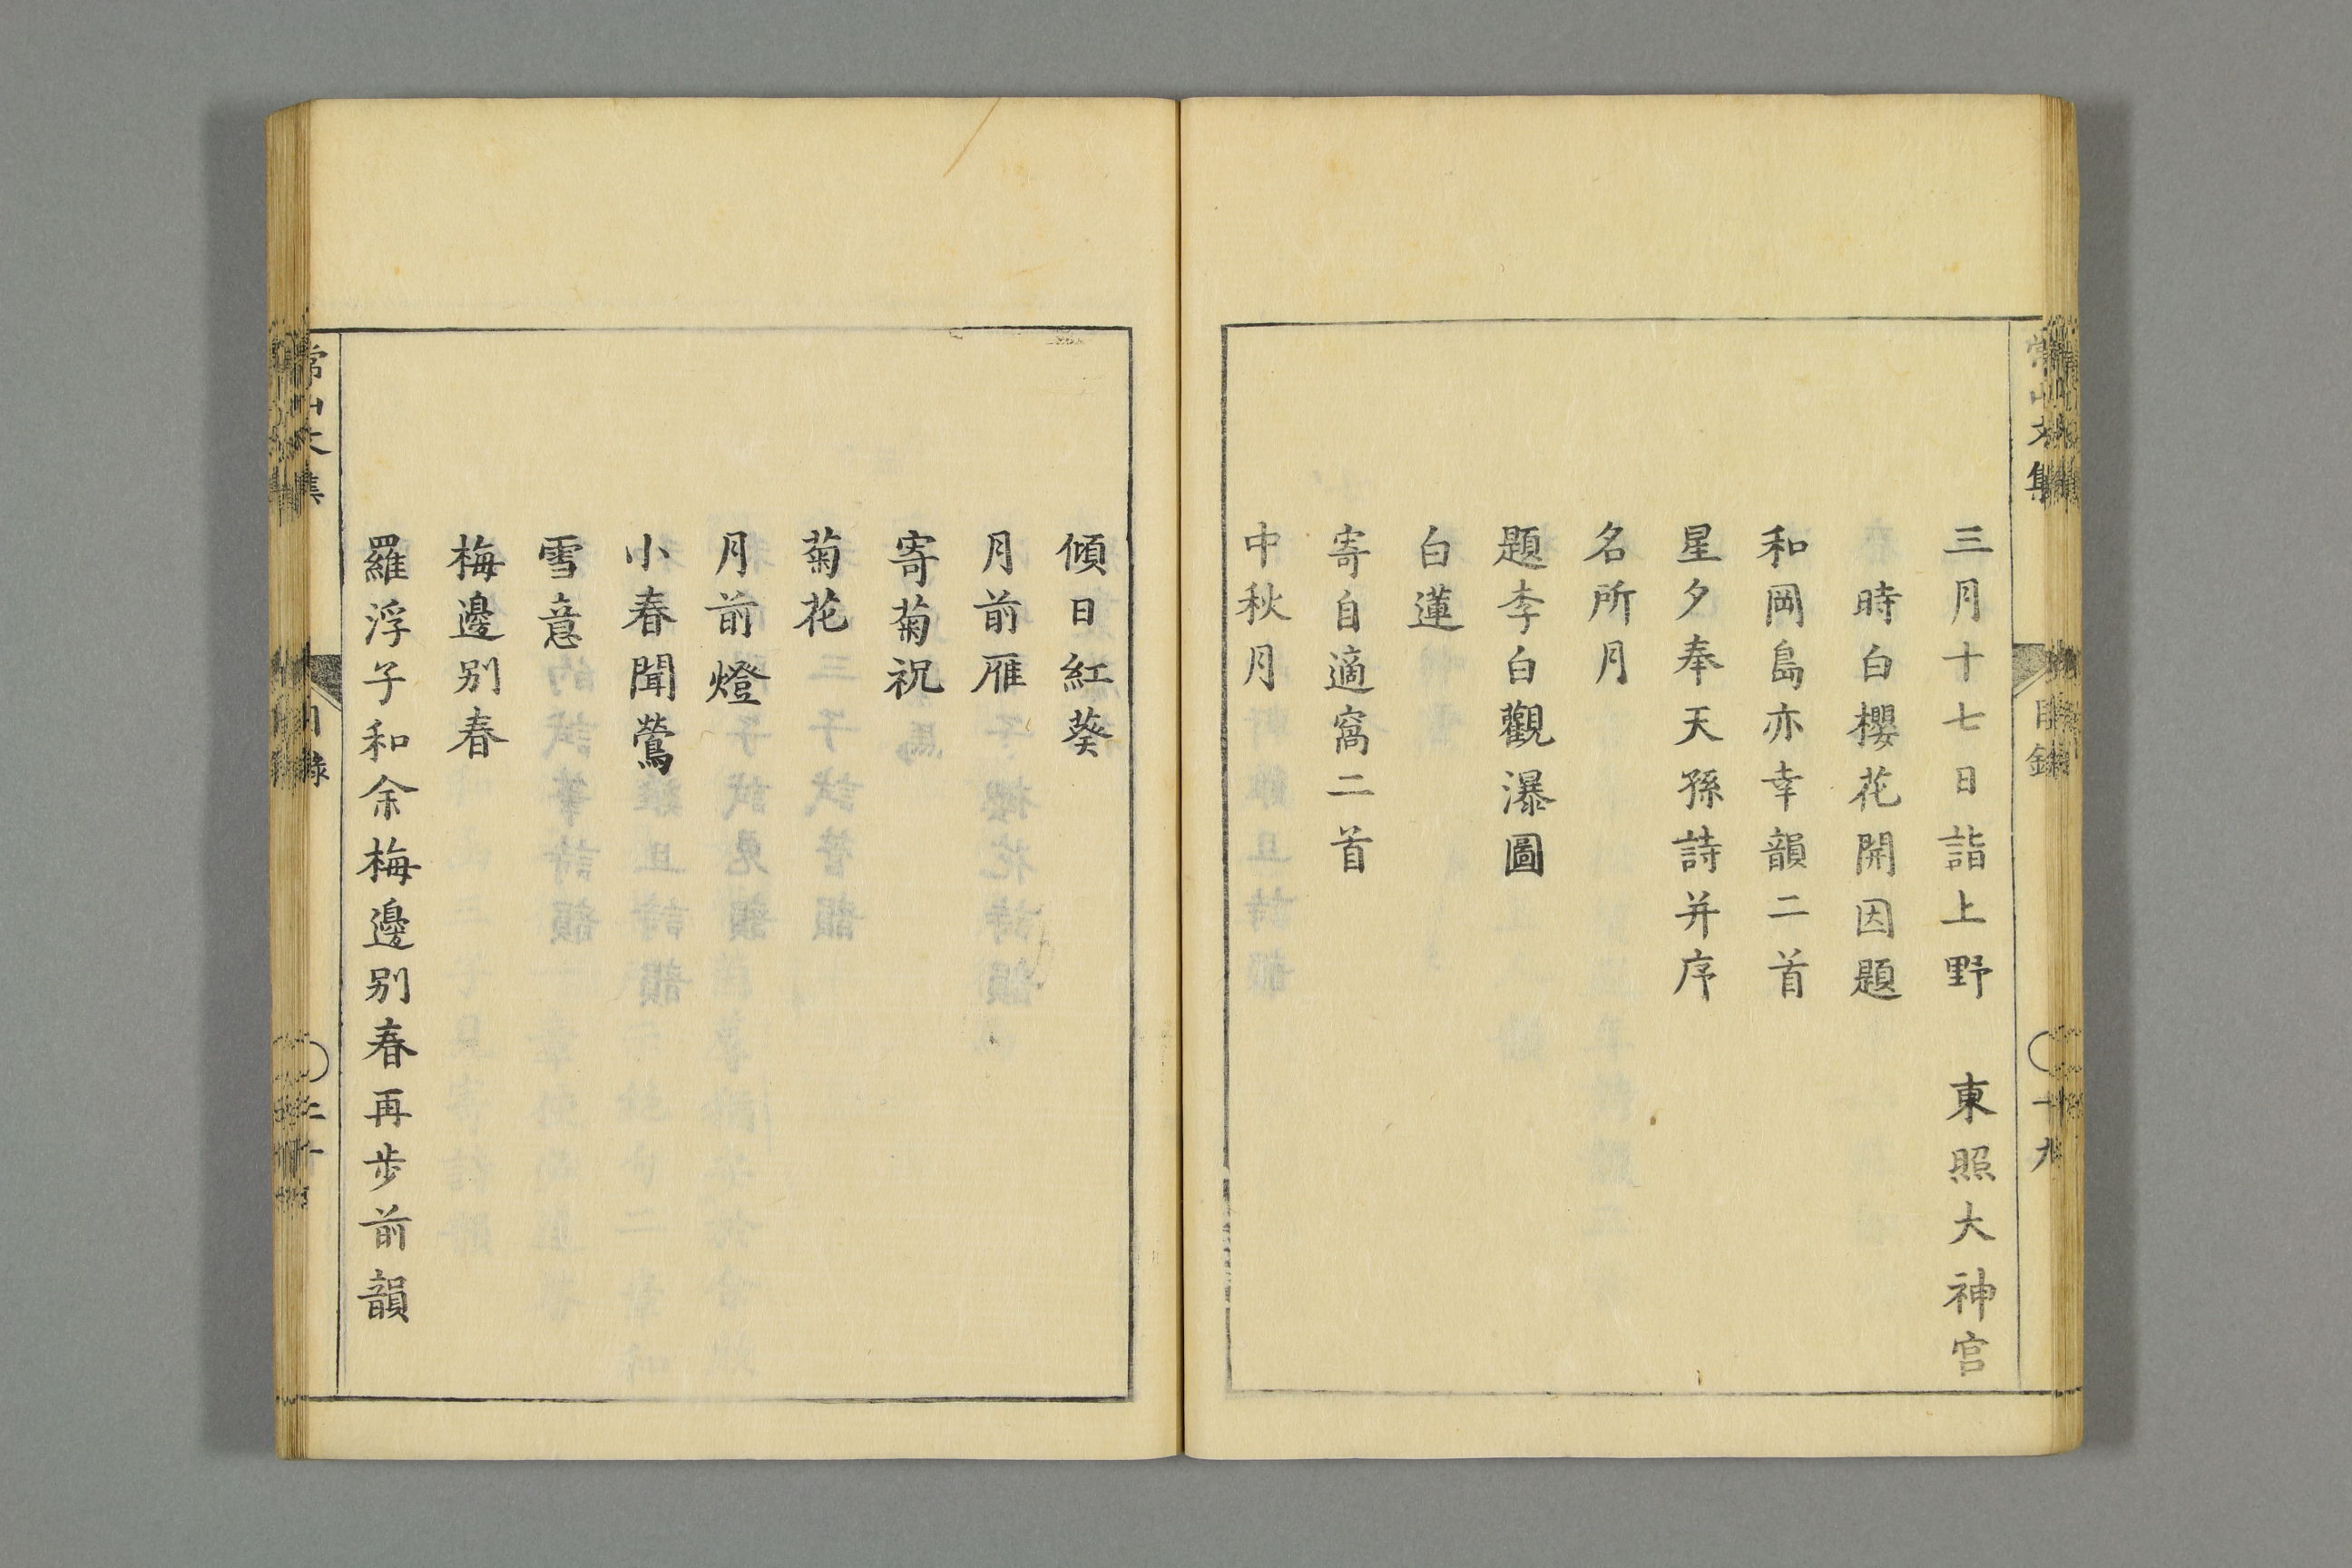 常山文集
目錄
十九
三月十七日詣上野　東照大神宮
時白櫻花開因題
和岡島亦幸韻二首
星夕奉天孫詩并序
名所月
題李白觀瀑圖
白蓮
寄自適窩二首
中秋月
傾日紅葵
月前雁
寄菊祝
菊花
月前燈
小春聞鶯
雪意
梅邊別春
羅浮子和余梅邊別春再步前韻
常山文集
目錄
二十